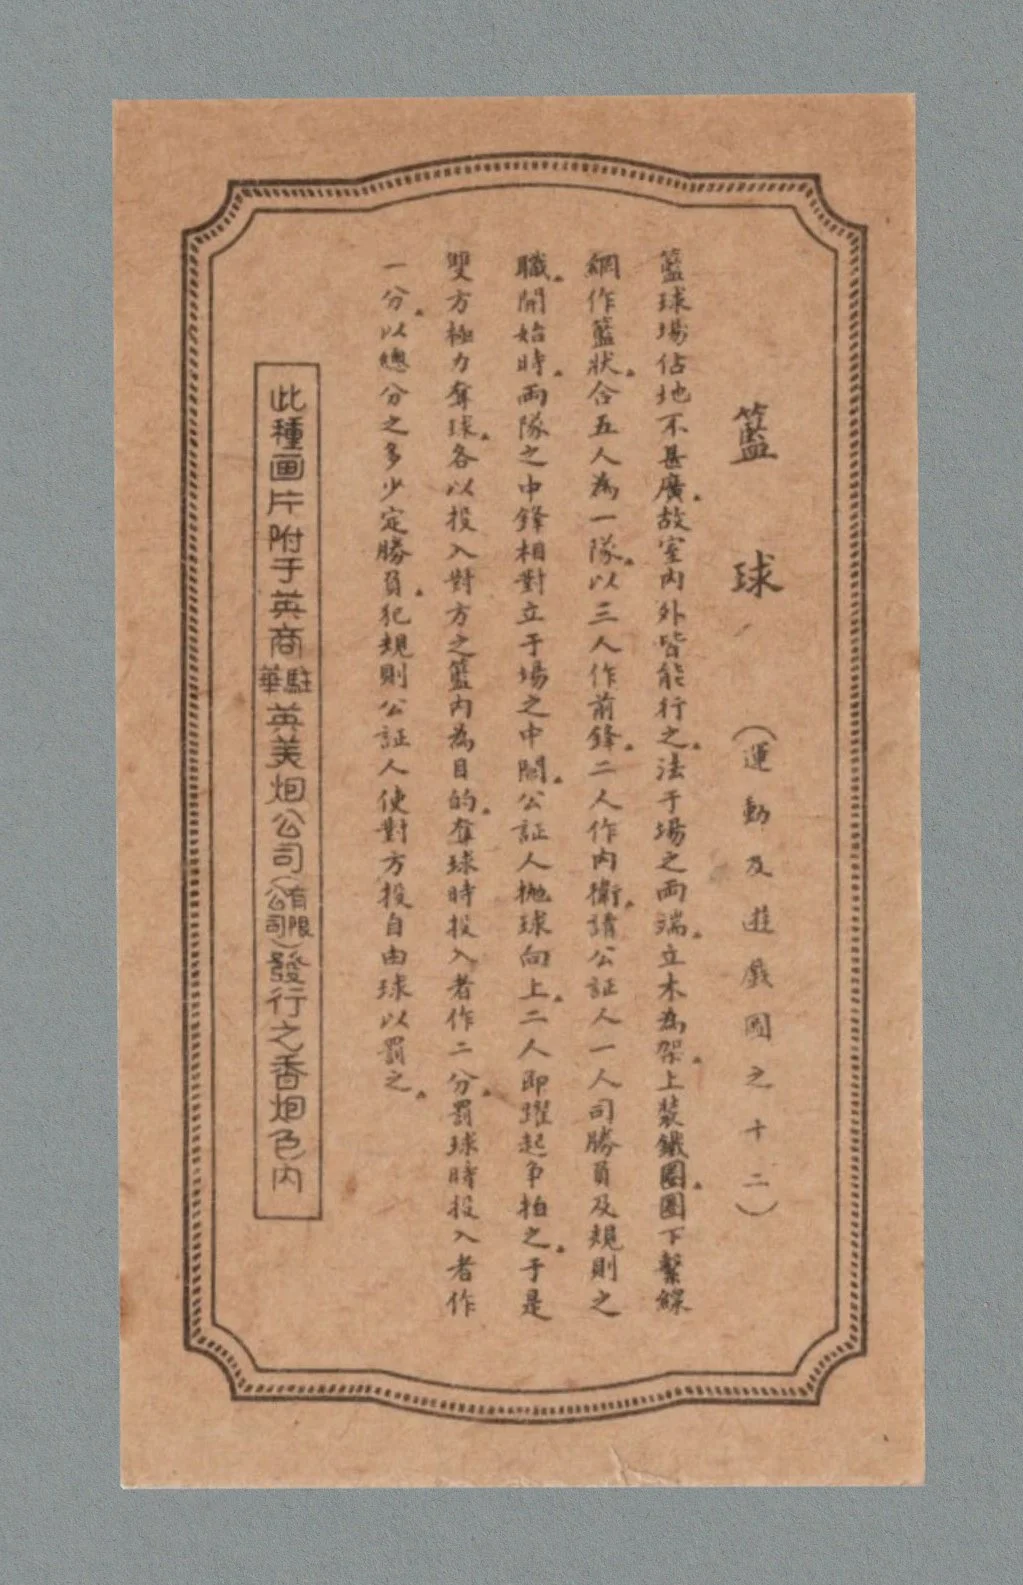 籃球
（運動及遊戲圖之十二）
籃球場佔地不甚廣。故室內外皆能行之。法于場之両端。立木為架。上裝鐵圈。圈下繫線
網作籃狀。合五人為一隊。以三人作前鋒。二人作內衛。請公証人一人司勝負及規則之
職。開始時。両隊之中鋒相對立于場之中間。公証人抛球向上。二人即躍起爭拍之。于是
雙方極力奪球。各以投入對方之籃內為目的。奪球時投入者作二分。罰球時投入者作
一分。以總分之多少定勝負。犯規則公証人使對方投自由球以罰之。
此種画片附于英商駐華英美烟公司（有限公司）發行之香烟包內